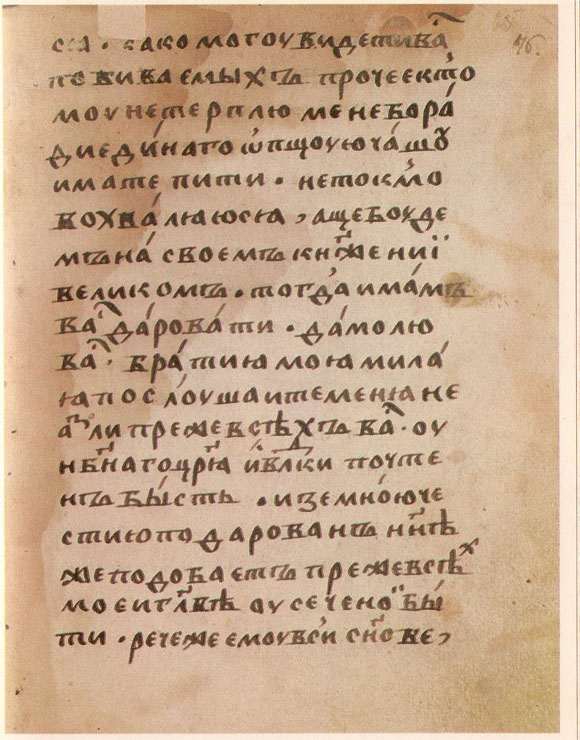 46.
сѧ · како могоу видети ваⷭ҇
побиваемыхъ прочее к то
моу не терплю мене бо ра
ди единаго ѡпщоую чашꙋ
имате пити · не токмо
вохвалюаюсѧ , аще боуде
мъ на своемъ кн҃жениї
великомъ · тогда имамъ
ваⷭ҇ даровати · да молю
ваⷭ҇ · братиꙗ моꙗ мила
ꙗ послоушаите мене ꙗ не
аⷥ ли преже всѣхъ ваⷭ҇ · оу
нб҃наго цр҃ѧ и влⷣки почте
нъ бысть · и земною че
стию подарованъ нн҃ѣ
же подобаетъ преже всѣⷯ
моеи гл҃вѣ оусеченоⷻ бы
ти · рече же емоу вси сн҃ове ,